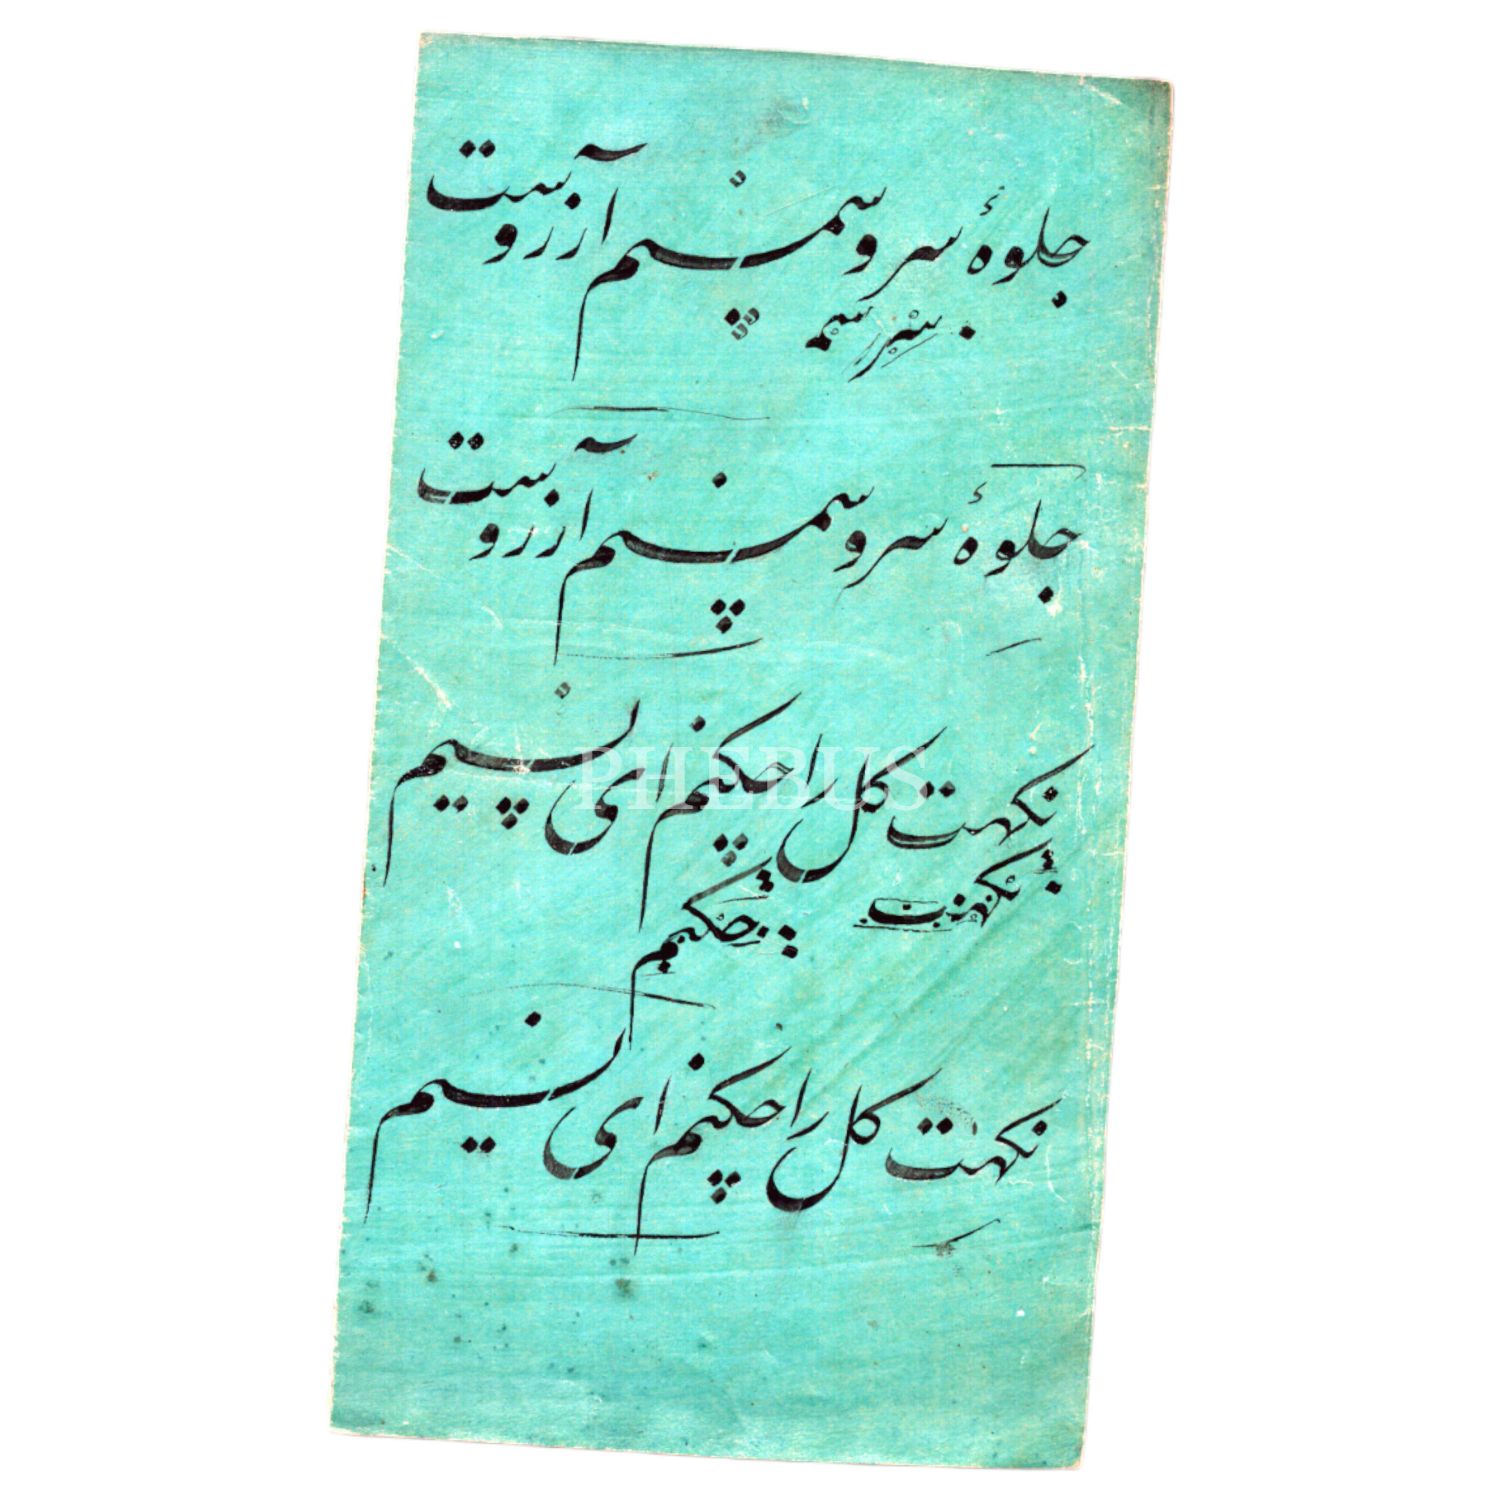 جلوهٔ سرو سمنم آرزوست
جلوهٔ سرو سمنم آرزوست
نکهت گل را چکنم ای نسیم
نکهت چکنم
نکهت گل را چکنم ای نسیم
PHEBUS